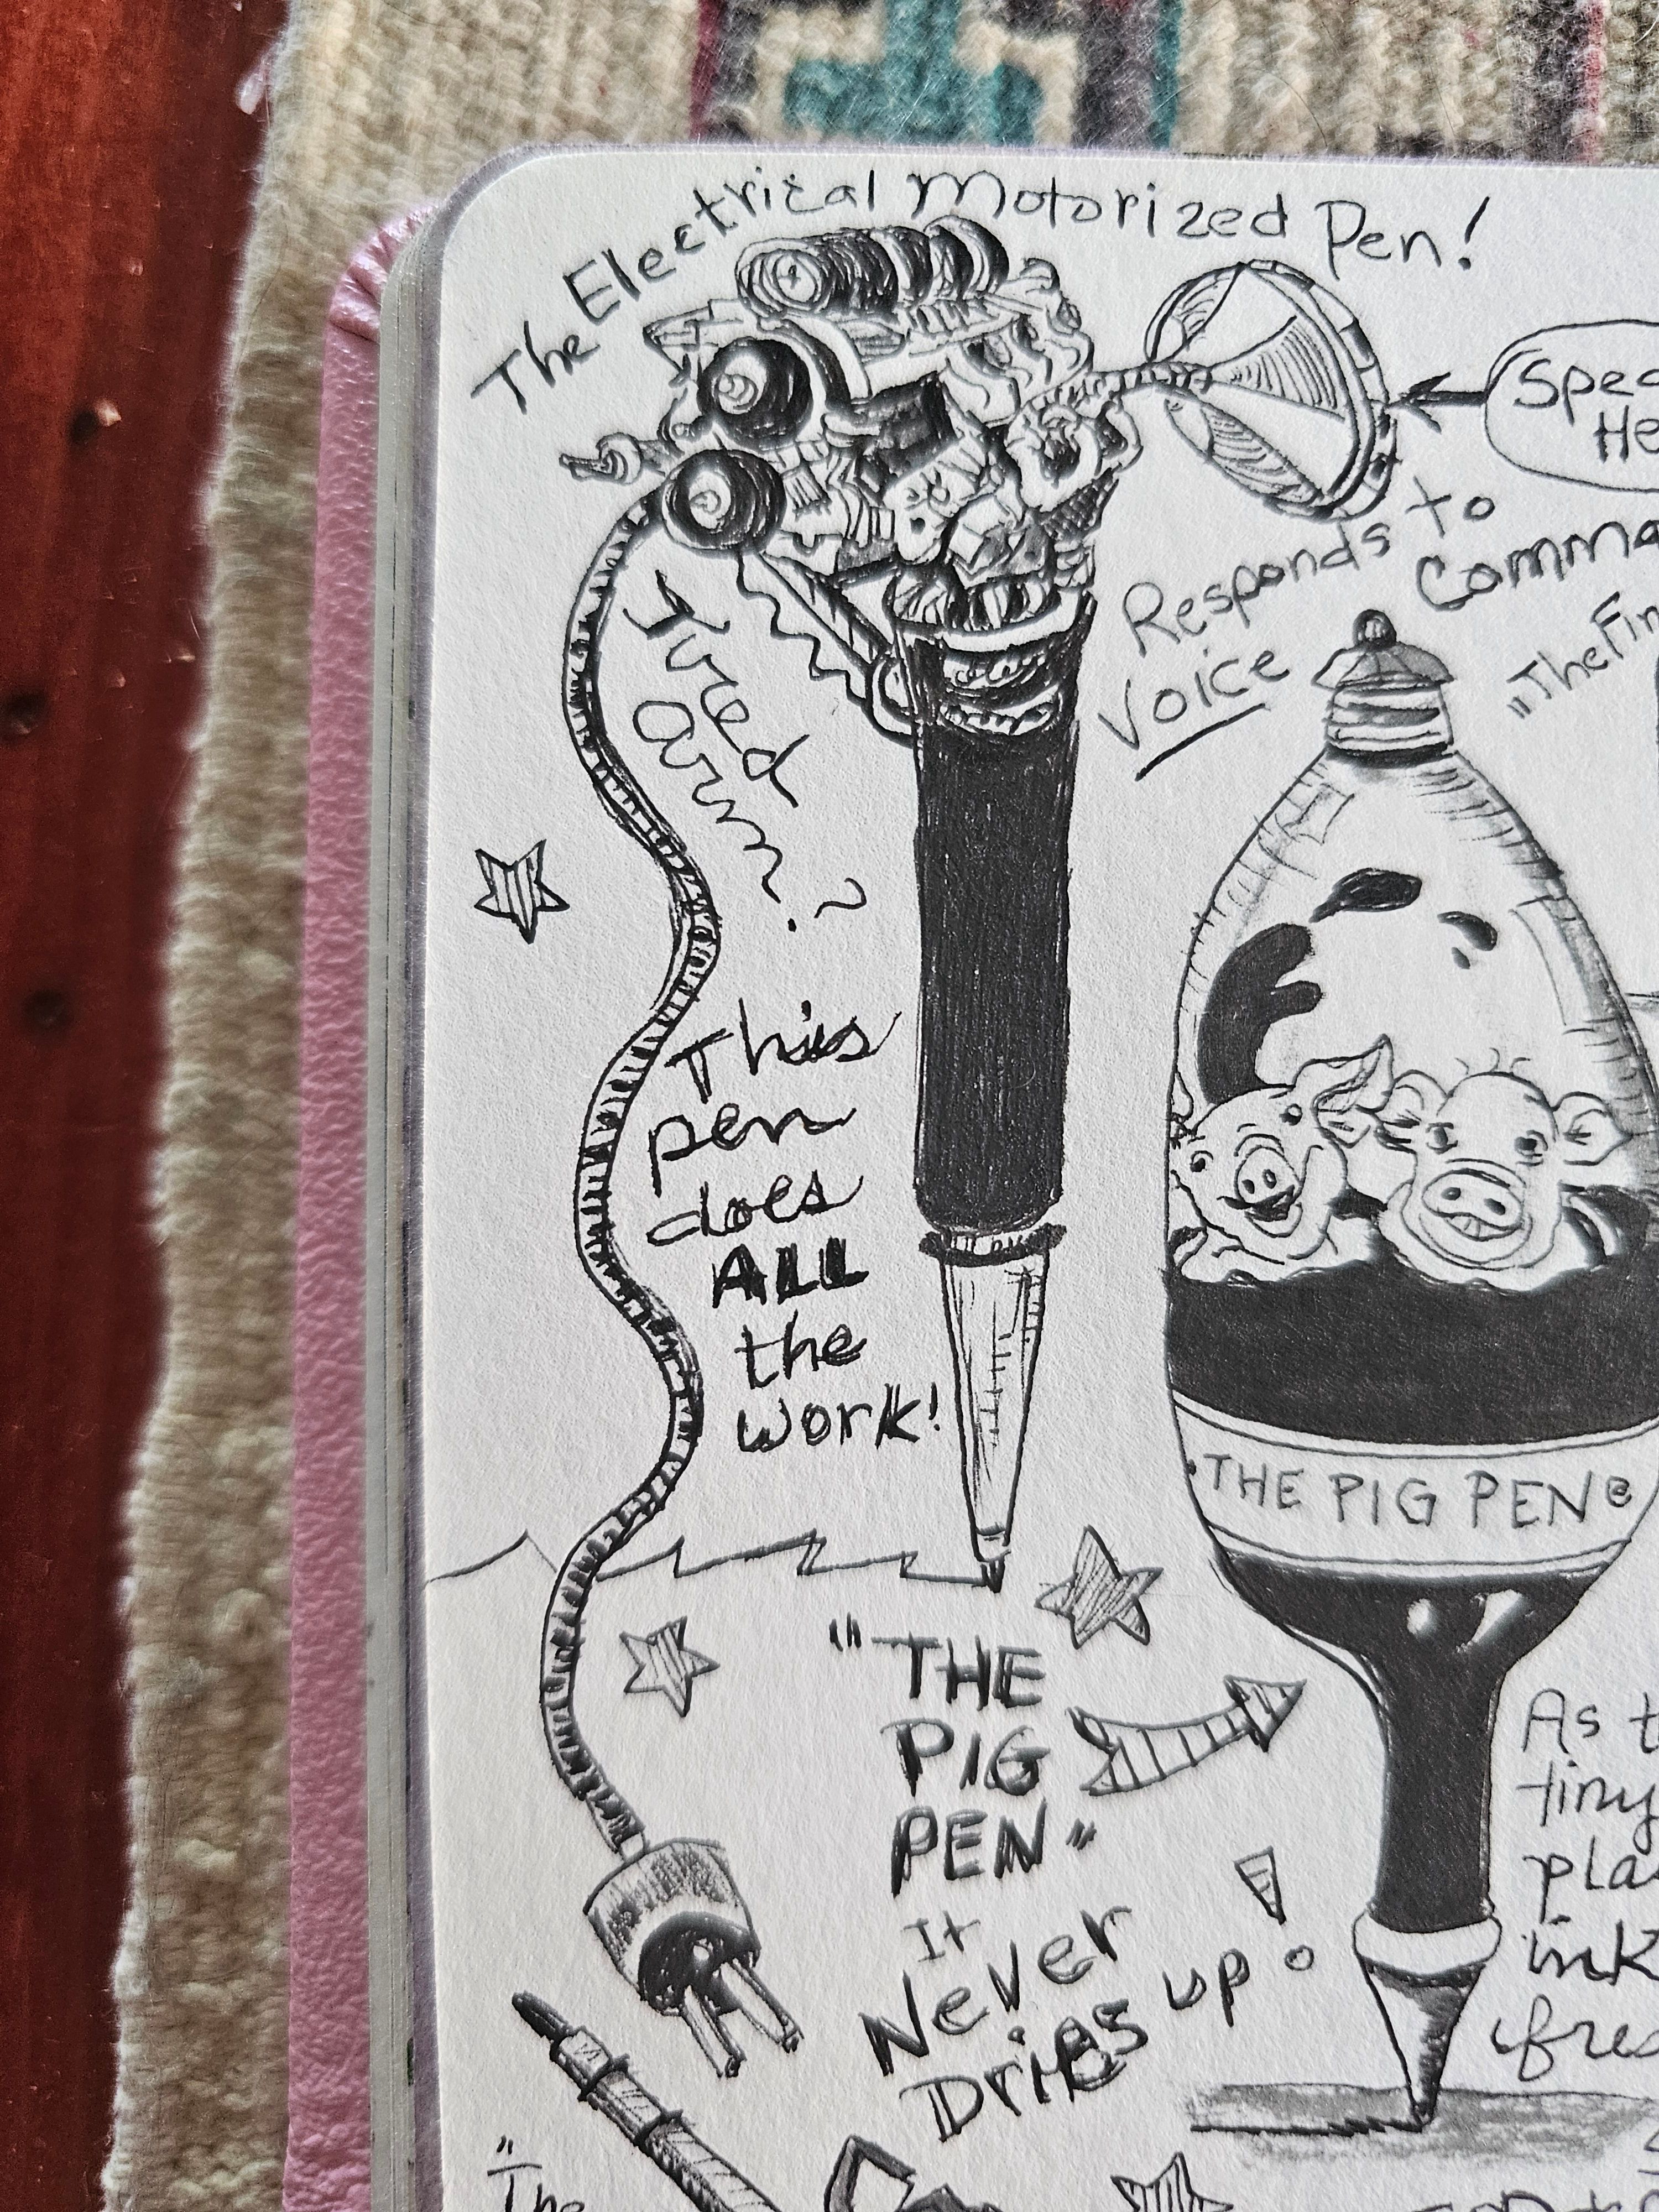 The Electrical Motorized Pen!
Responds to
Voice
Tired
Arm?
This
pen
does
ALL
the
work!
THE PIG PEN
"THE
PIG
PEN"
It
Never
Dries up!
As
tiny
ink
"The